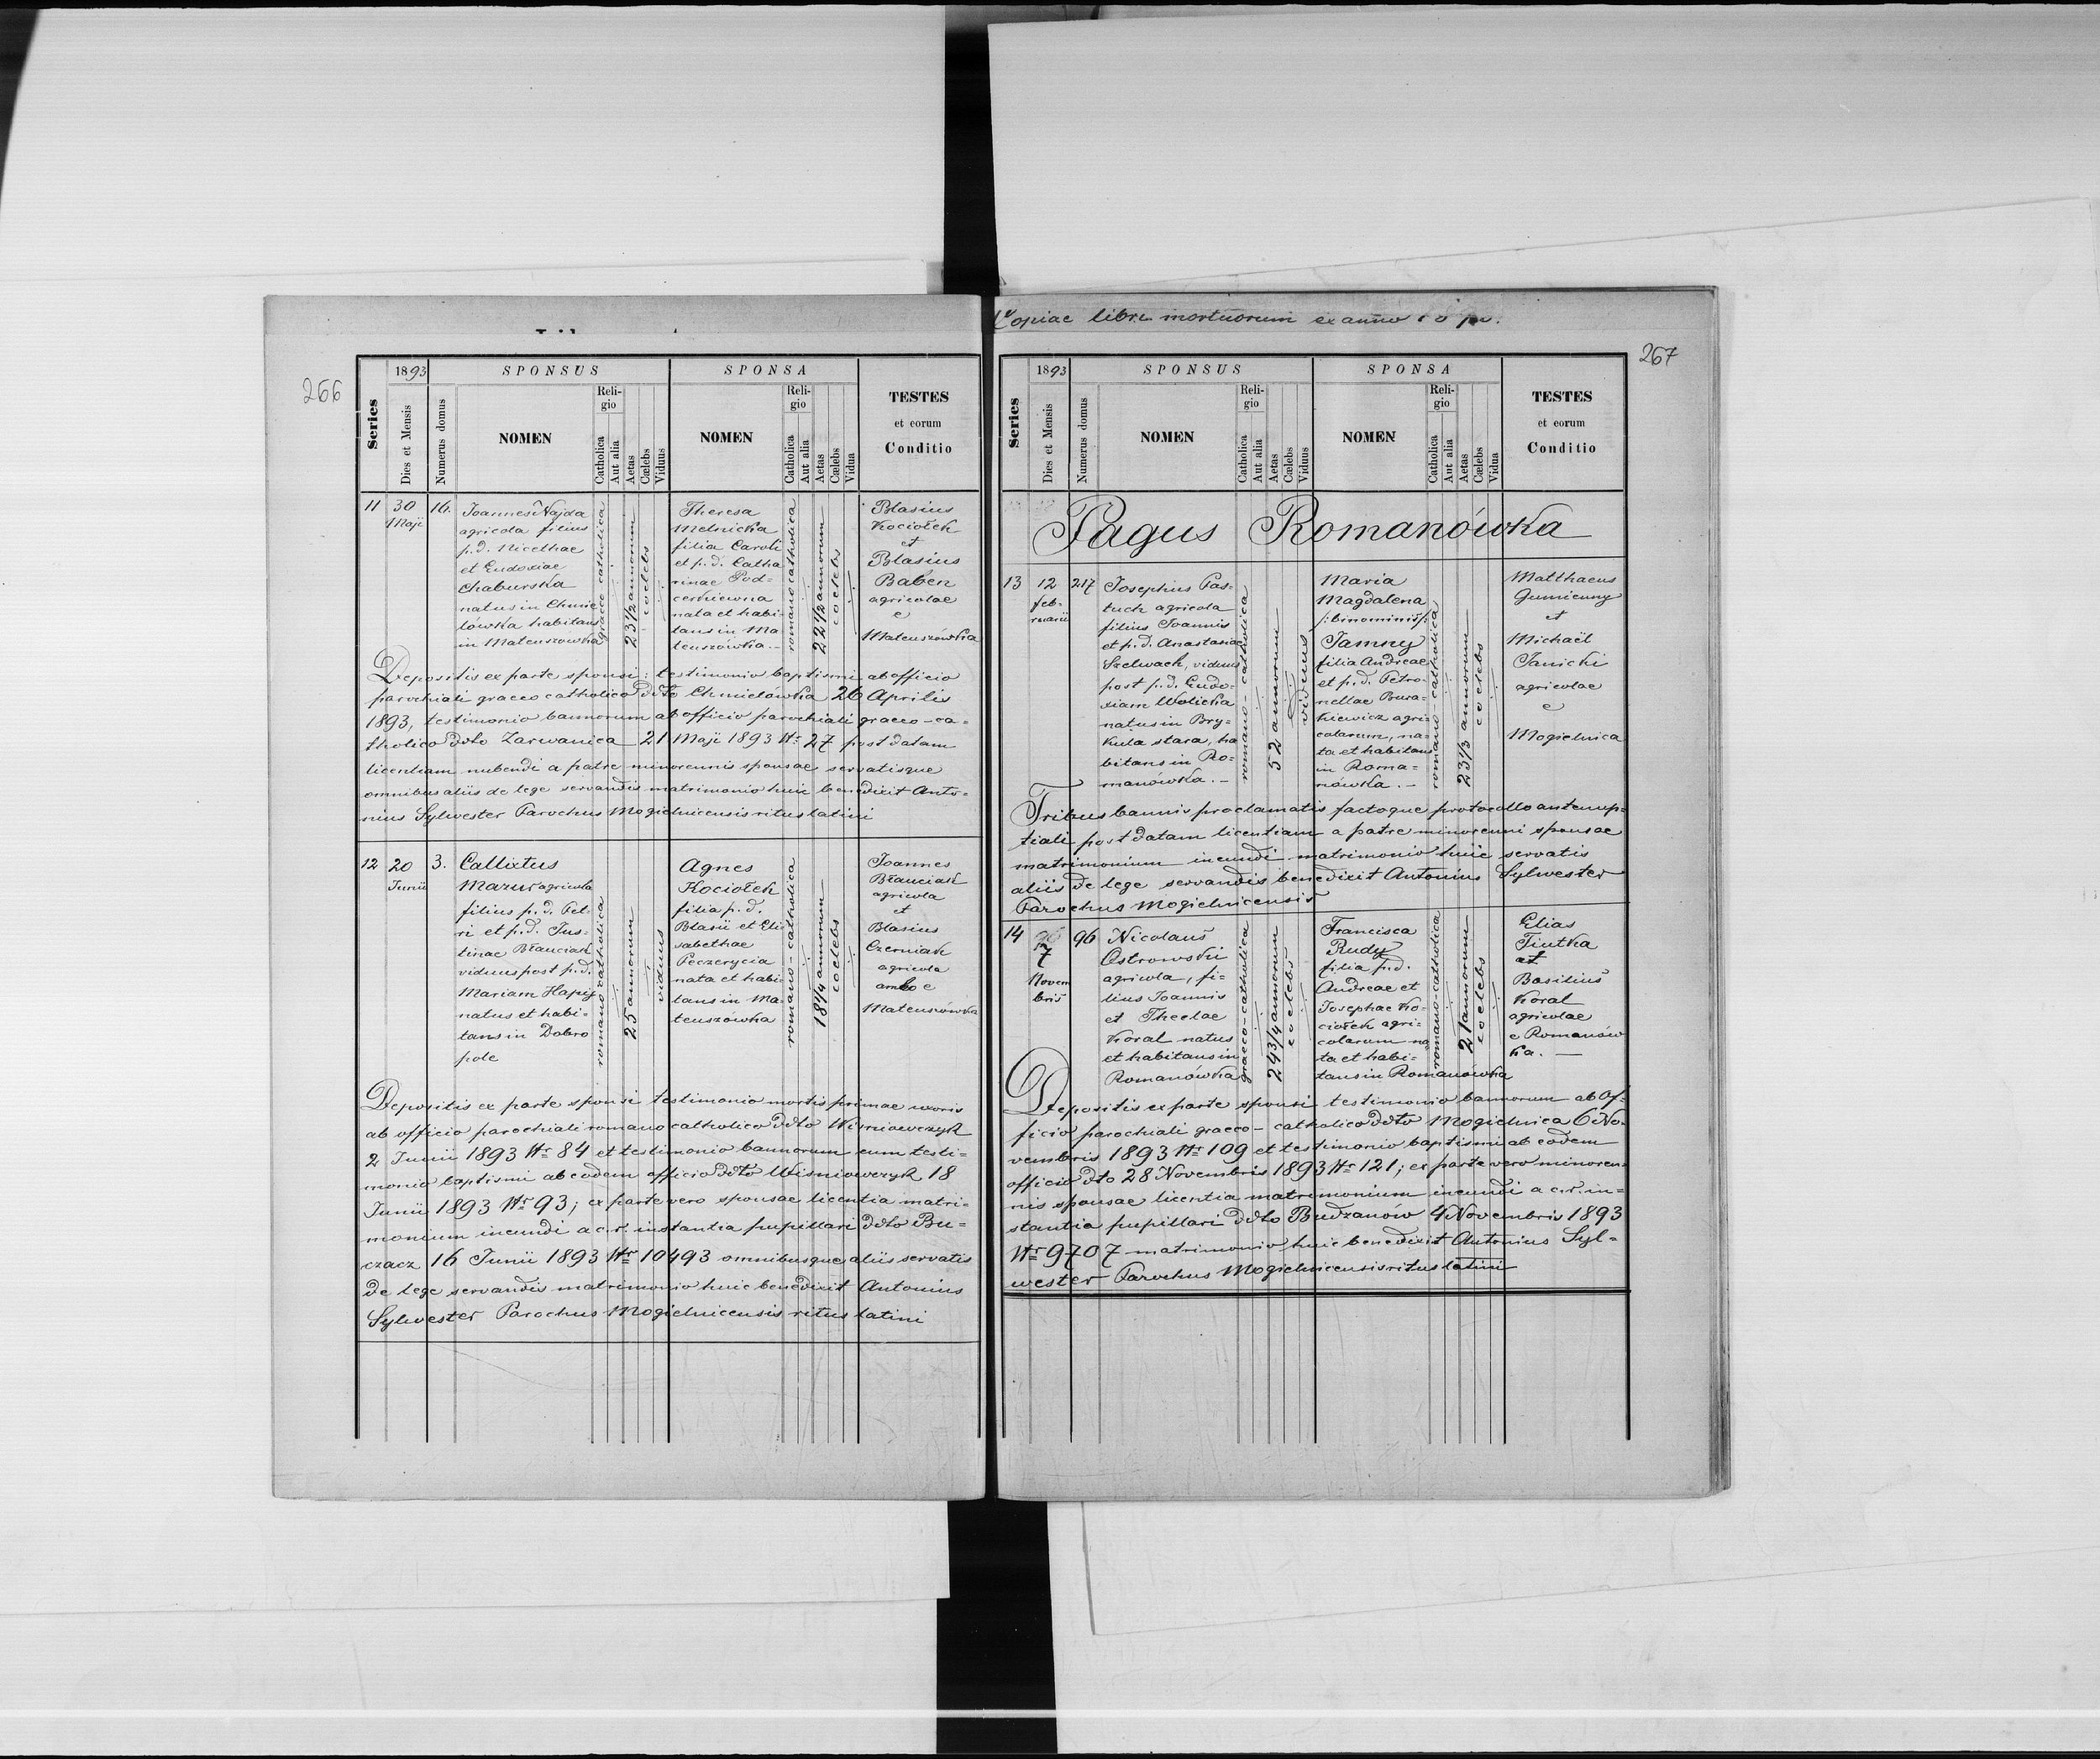 266
1893
SPONSUS
SPONSA
Series
Dies et Mensis
Numerus domus
NOMEN
Reli-
gio
Catholica
Aut alia
Aetas
Cælebs
Viduus
NOMEN
Reli-
gio
Catholica
Aut alia
Aetas
Cælebs
Vidua
TESTES
et eorum
Conditio
11
30
Maji
16.
Joannes Najda
agricola filius
p.d. Nicethae
et Eudoxiae
Chaburska
natus in Chmie
lówka habitans
in Mateuszówka
graeco catholica
23 1/2 annorum
coelebs
Theresa
Melnicka
filia Caroli
et p.d. Catha
rinae Pod-
cerkiewna
nata et habi-
tans in Ma
teuszówka.-
romano catholica
22 1/2 annorum
coelebs
Blasius
Kociołek
et
Blasius
Baben
agricolae
e
Mateuszówka
Depositis ex parte sponsi: testimonio baptismi ab officio
parochiali graeco catholico ddto Chmielówka 26 Aprilis
1893, testimonio bannorum ab officio parochiali graeco-ca-
tholico ddto Zarwanica 21 Maji 1893 Nr 27 post datam
licentiam nubendi a patre minorennis sponsae servatisque
omnibus aliis de lege servandis matrimonio huic benedixit Anto-
nius Sylwester Parochus Mogielnicensis ritus latini
12
20
Junii
3.
Callixtus
Mazur agricola
filius p.d. Pet-
ri et p.d. Jus-
tinae Błauciak
viduus post p.d.
Mariam Hapij
natus et habi-
tans in Dobro
pole
romano catholica
25 annorum
viduus
Agnes
Kociołek
filia p.d.
Blasii et Eli-
sabethae
Peczerycia
nata et habi-
tans in Ma-
teuszówka
romano-catholica
18 1/4 annorum
coelebs
Joannes
Błauciak
agricola
et
Blasius
Czerniak
agricola
ambo e
Mateuszówka
Depositis ex parte sponsi testimonio mortis primae uxoris
ab officio parochiali romano catholico ddto Wiśniowczyk
2 Junii 1893 Nr 84 et testimonio bannorum cum testi-
monio baptismi ab eodem officio ddto Wiśniowczyk 18
Junii 1893 Nr 93; ex parte vero sponsae licentia matri-
monium ineundi a c.r. instantia pupillari ddto Bu-
czacz 16 Junii 1893 Nr 10493 omnibusque aliis servatis
de lege servandis matrimonio huic benedixit Antonius
Sylwester Parochus Mogielnicensis ritus latini
Copiae libri mortuorum ex anno
267
1893
SPONSUS
SPONSA
Series
Dies et Mensis
Numerus domus
NOMEN
Reli-
gio
Catholica
Aut alia
Aetas
Cælebs
Viduus
NOMEN
Reli-
gio
Catholica
Aut alia
Aetas
Cælebs
Vidua
TESTES
et eorum
Conditio
Pagus Romanówka
13
12
feb-
ruarii
217
Josephus Pas-
tuch agricola
filius Joannis
et p.d. Anastasiae
Szelwach, viduus
post p.d. Eudo-
xiam Wolicka
natus in Bry-
kula stara, ha
bitans in Ro-
manówka.-
romano-catholica
52 annorum
viduus
Maria
Magdalena
/:binominis:/
Jamny
filia Andreae
et p.d. Petro-
nellae Bura-
kiewicz agri-
colarum, na-
ta et habitans
in Roma-
nówka.-
romano-catholica
23 1/3 annorum
coelebs
Matthaeus
Gumienny
et
Michaël
Janicki
agricolae
e
Mogielnica
Tribus bannis proclamatis factoque protocollo antenup-
tiali post datam licentiam a patre minorenni sponsae
matrimonium ineundi matrimonio huic servatis
aliis de lege servandis benedixit Antonius Sylwester
Parochus Mogielnicensis
14
7
Novem
bris
96
Nicolaus
Ostrowski
agricola, fi-
lius Joannis
et Theclae
Koral natus
et habitans in
Romanówka
graeco-catholica
24 3/4 annorum
coelebs
Francisca
Rudy
filia p.d.
Andreae et
Josephae Ko-
ciołek agri-
colarum na
ta et habi-
tans in Romanówka
romano-catholica
21 annorum
coelebs
Elias
Tiutka
et
Basilius
Koral
agricolae
e Romanów
ka.-
Depositis ex parte sponsi testimonio bannorum ab Of-
ficio parochiali graeco-catholico ddto Mogielnica 6 No-
vembris 1893 Nr 109 et testimonio baptismi ab eodem
officio dto 28 Novembris 1893 Nr 121; ex parte vero minoren-
nis sponsae licentia matrimonium ineundi a c.r. in-
stantia pupillari ddto Budzanów 4 Novembris 1893
Nr 9707 matrimonio huic benedixit Antonius Syl-
wester Parochus Mogielnicensis ritus latini